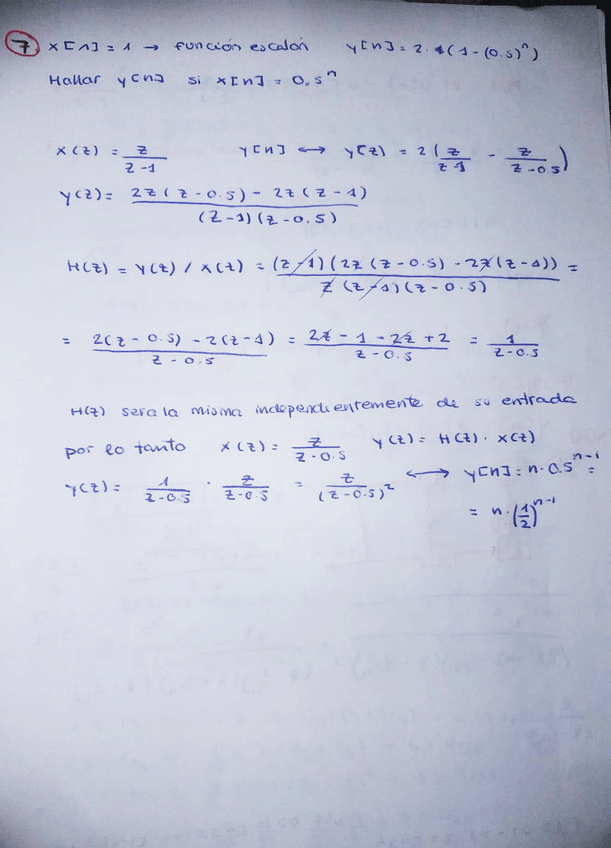 7 x[n] = 1 → función escalón y[n] = 2·(1-(0.5)^n)
Hallar y[n] si x[n] = 0.5^n
x(z) = z/(z-1) y[n] ↔ y(z) = 2(z/(z-1) - z/(z-0.5))
y(z) = (2z(z-0.5) - 2z(z-1))/((z-1)(z-0.5))
H(z) = y(z) / x(z) = ((z-1)(2z(z-0.5) - 2z(z-1)))/(z(z-1)(z-0.5)) =
= (2(z-0.5) - 2(z-1))/(z-0.5) = (2z - 1 - 2z + 2)/(z-0.5) = 1/(z-0.5)
H(z) sera la misma independientemente de su entrada
por lo tanto x(z) = z/(z-0.5) y(z) = H(z) · x(z)
y(z) = 1/(z-0.5) · z/(z-0.5) = z/(z-0.5)^2 ↔ y[n] = n·0.5^(n-1) =
= n·(1/2)^(n-1)